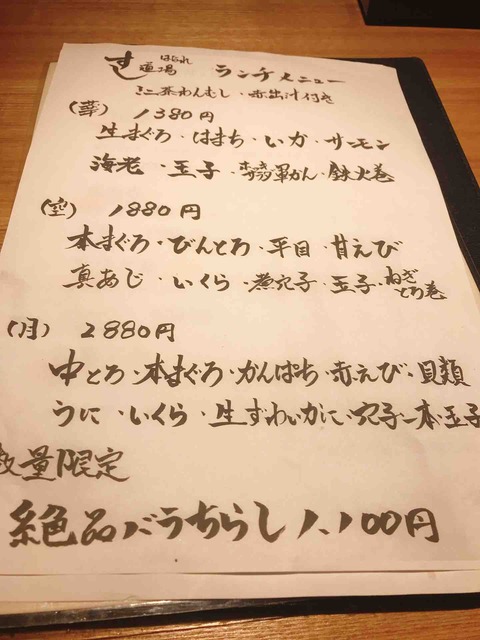 すし道場 はなれ ランチメニュー
ミニ茶わんむし・赤出汁付き
(華) 1380円
生まぐろ・はまち・いか・サーモン
海老・玉子・軍かん・鉄火巻
(空) 1880円
本まぐろ・びんとろ・平目・甘えび
真あじ・いくら・煮穴子・玉子・ねぎとろ巻
(月) 2880円
中とろ・本まぐろ・かんぱち・赤えび・貝類
うに・いくら・生ずわいがに・穴子一本・玉子
数量限定
絶品ばらちらし 1,100円